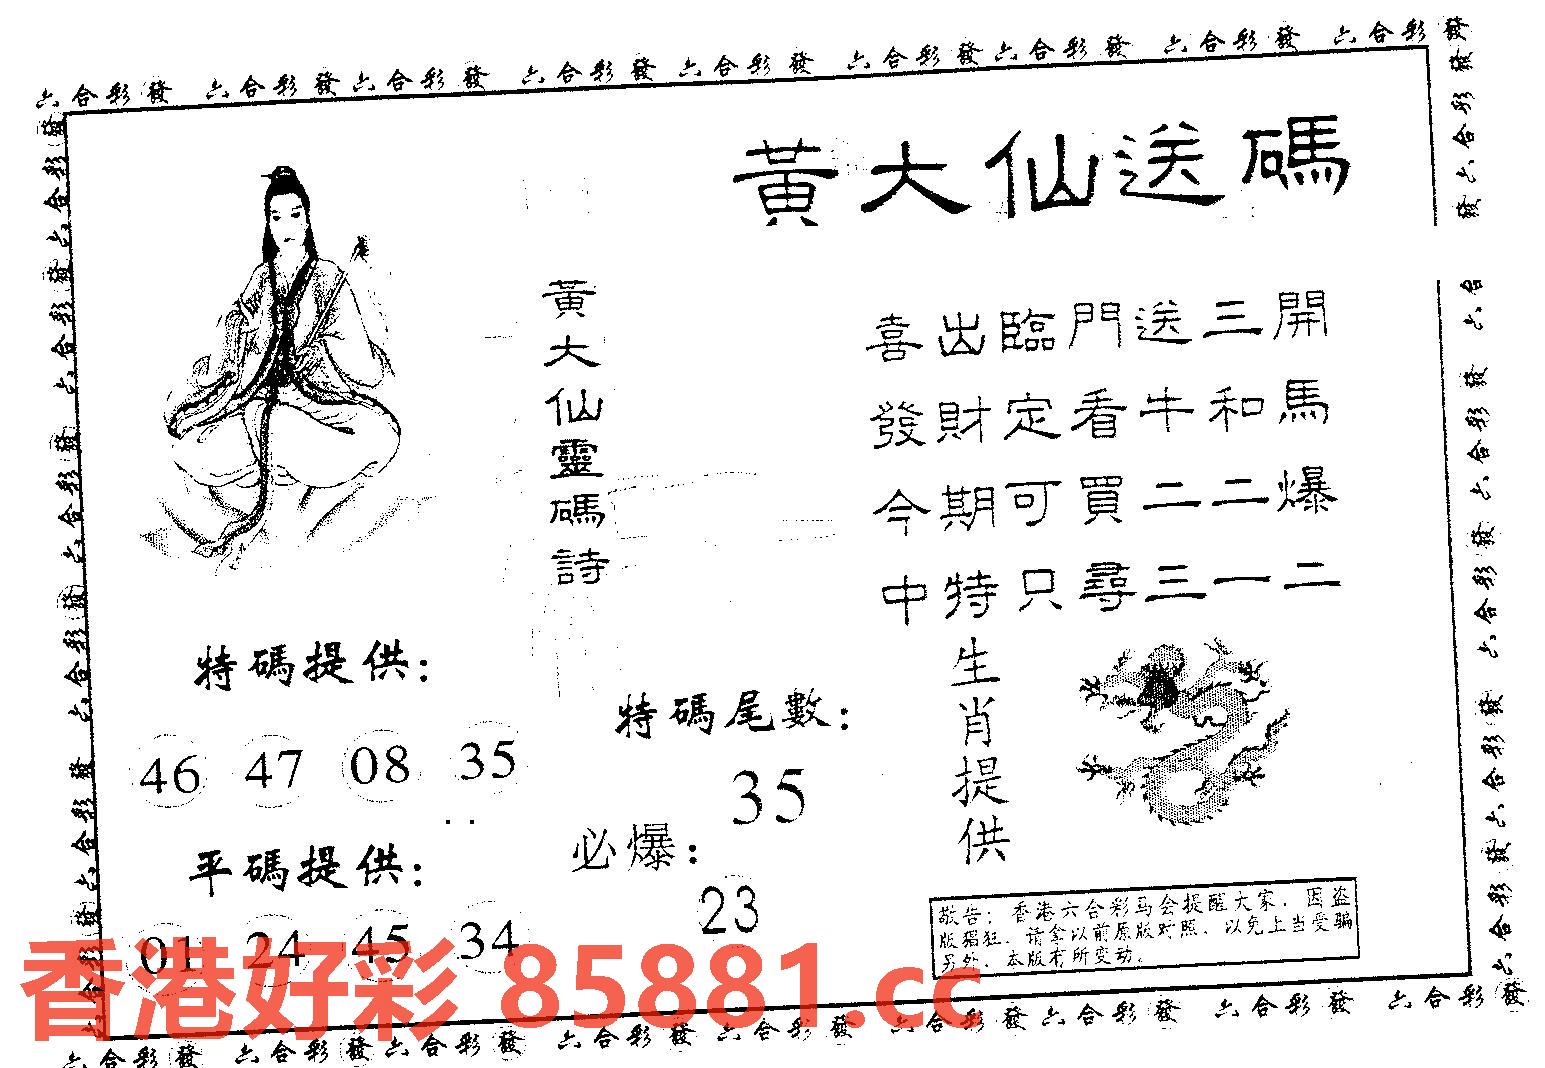 六合彩發 六合彩發六合彩發 六合彩發 六合彩發 六合彩發六合彩發 六合彩發 六合彩發
黃大仙送碼
黃大仙靈碼詩
喜出臨門送三開
發財定看牛和馬
今期可買二二爆
中特只尋三一二
特碼提供:
46 47 08 35
平碼提供:
01 24 45 34
特碼尾數:
35
必爆:
23
生肖提供
敬告:香港六合彩马会提醒大家,因盗
版猖狂,请拿以前原版对照,以免上当受骗
另外,本版有所变动。
香港好彩 85881.cc
六合彩發 六合彩發六合彩發 六合彩發 六合彩發 六合彩發六合彩發 六合彩發 六合彩發